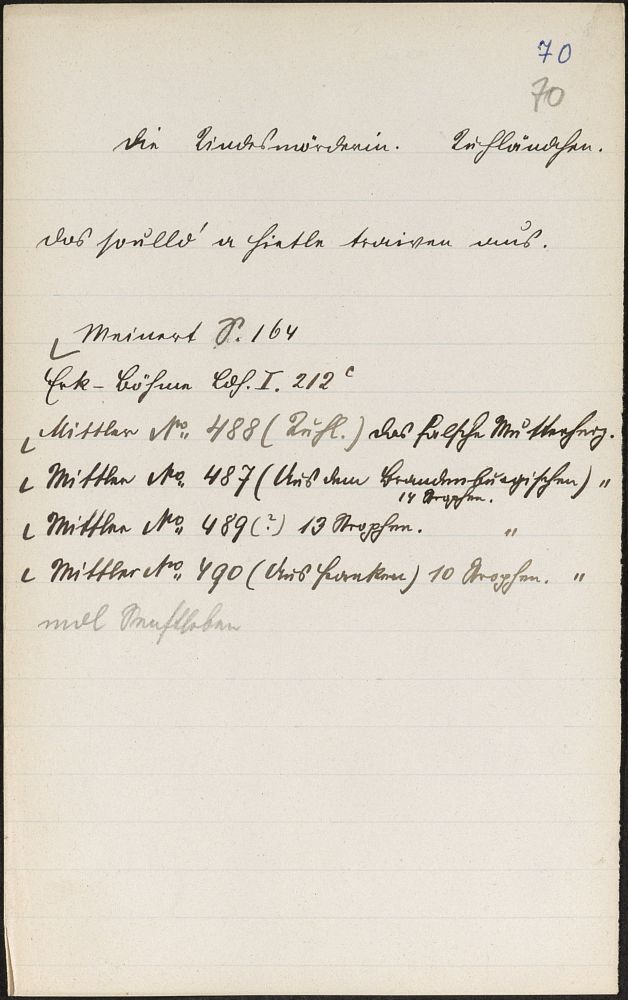 70
70
Die Kindesmörderin. Kuhländchen.
Das soulld' a Hietle traiven aus.
Meinert S. 164
Erk-Böhme Ldh. I. 212c
Mittler No. 488 (Kuhl.) Das falsche Mutterherz.
Mittler No. 487 (Aus dem Brandenburgischen) "
14 Strophen.
Mittler No. 489 (?) 13 Strophen. "
Mittler No. 490 (Aus Franken) 10 Strophen. "